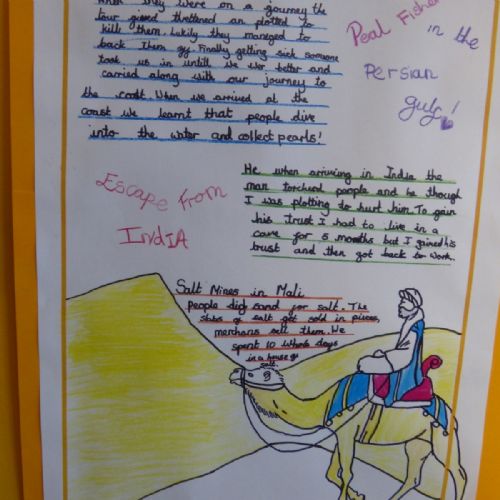 when they were on a gourney the
tour guied threttened an plotted to
kill them. Lukily they maneged to
back them gy. Finally getting sick someone
took us in untill we wer better and
carried along with our journey to
the coast. When we arrived at the
coast we learnt that people dive
into the water and collect pearls!
Peal Fisher
in the
Persian
gulg!
Escape From
IndIA
He when arriving in India the
man torcherd people and he though
I was plotting to hurt him. To gain
his trust I had to live in a
cave for 5 months but I gained his
trust and then got back to work.
Salt Mines in Mali
people dig sand for salt. The
slabs of salt get sold in pieces,
merchans sell them. We
spent 10 whole days
in a house of
salt.